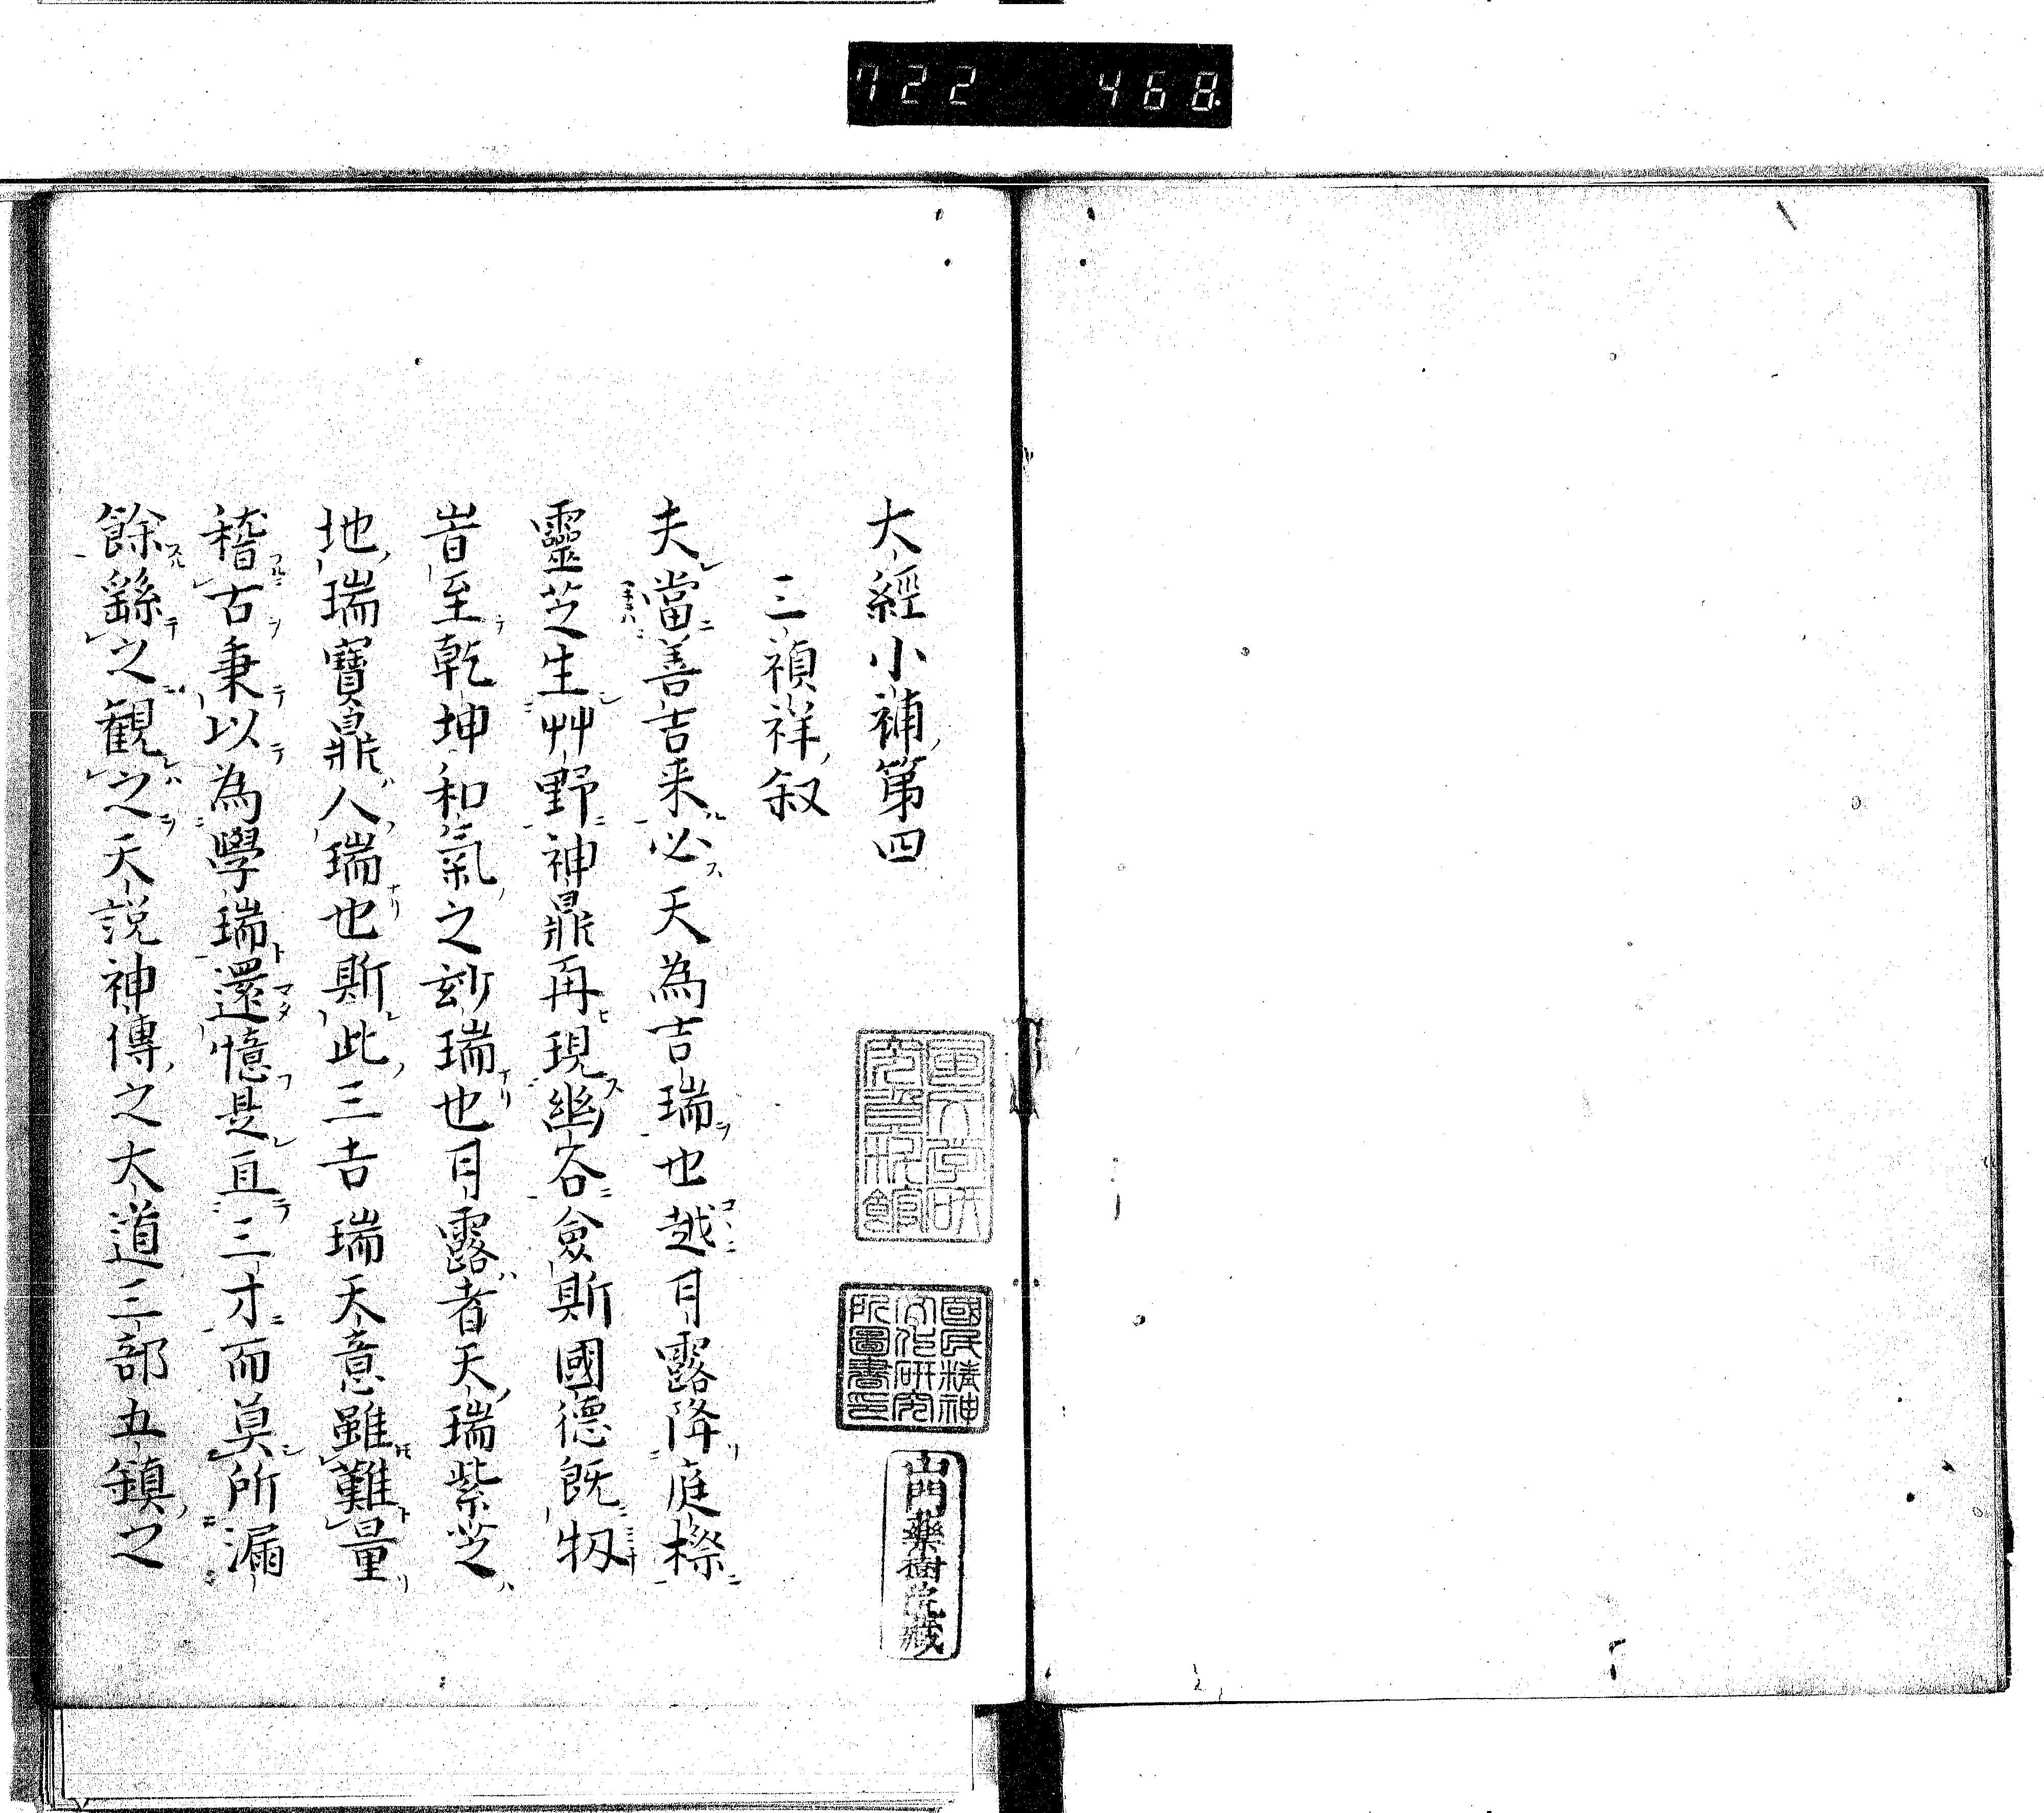 722 468
大経小補第四
三禎祥叙
夫當善吉来必天為吉瑞也越月露降庭際
靈芝生艸野神鼎再現幽谷僉斯國德既牣
旹至乾坤和氣之玅瑞也月露者天瑞紫芝
地瑞寶鼎人瑞也斯此三吉瑞天意雖難量
稽古秉以為學瑞還憶是亘三才而莫所漏
餘繇之観之天説神傳之大道三部五鎮之
國民精神
文化研究
所圖書印
山門藥樹院藏